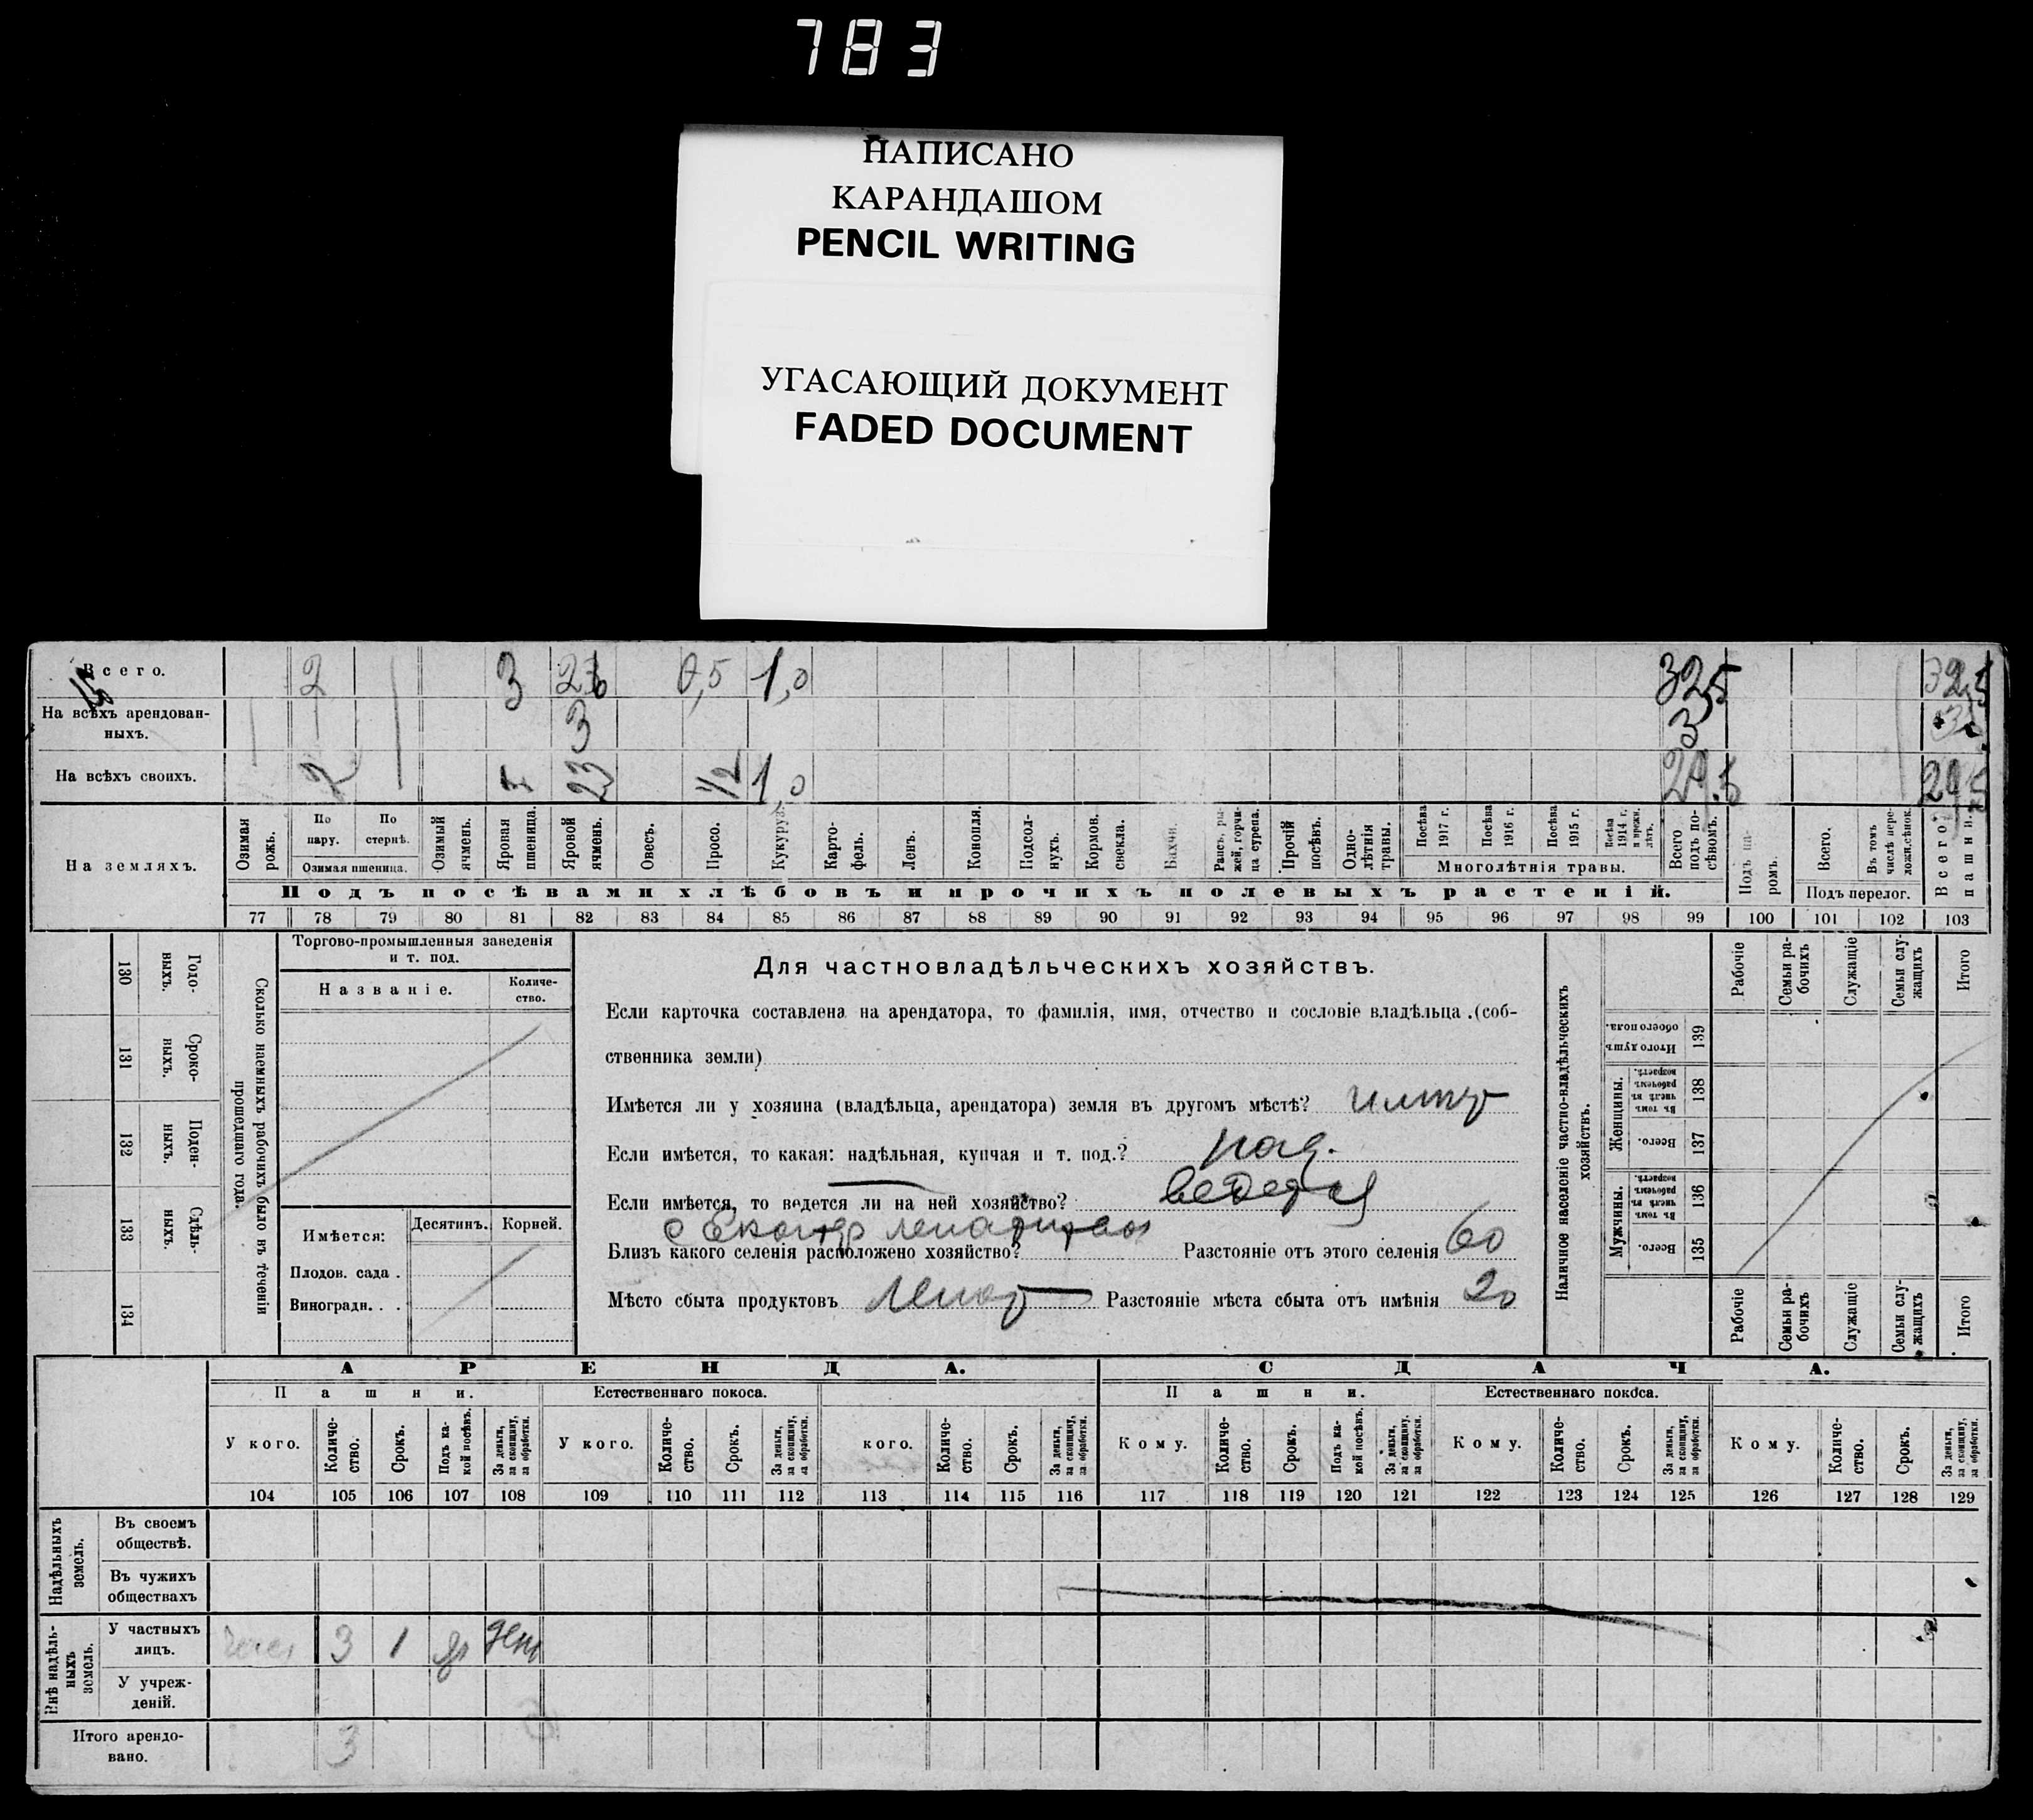 783
НАПИСАНО
КАРАНДАШОМ
PENCIL WRITING
УГАСАЮЩИЙ ДОКУМЕНТ
FADED DOCUMENT
Всего. 2 3 26 0,5 1,0 32,5 32,5
На всѣхъ арендованныхъ. 3 3 3
На всѣхъ своихъ. 2 23 1/2 1,0 29.5 29,5
На земляхъ.
Озимая рожь.
По пару.
По стернѣ.
Озимая пшеница.
Озимый ячмень.
Яровая пшеница.
Яровой ячмень.
Овесъ.
Просо.
Кукуруз.
Карто-фель.
Ленъ.
Конопля.
Подсол-нухъ.
Кормов. свекла.
Бахчи.
Рапсъ, ры-жей, горчи-ца сурепа.
Прочій посѣвъ.
Одно-лѣтнія травы.
Посѣва 1917 г.
Посѣва 1916 г.
Посѣва 1915 г.
Посѣва 1914 г. и прежн. лѣтъ.
Многолѣтнія травы.
Всего подъ по-сѣвомъ.
Подъ па-ромъ.
Всего.
Въ томъ числѣ пере-ложн. сѣнок.
Подъ перелог.
Всего пашни.
Подъ посѣвами хлѣбовъ и прочихъ полевыхъ растеній.
77 78 79 80 81 82 83 84 85 86 87 88 89 90 91 92 93 94 95 96 97 98 99 100 101 102 103
130 Годо-ныхъ.
131 Сроко-ныхъ.
132 Поден-ныхъ.
133 Сдѣль-ныхъ.
134
Сколько наемныхъ рабочихъ было въ теченіи прошедшаго года.
Торгово-промышленныя заведенія
и т. под.
Названіе.
Количе-ство.
Имѣется:
Десятинъ.
Корней.
Плодов. сада .
Виноградн. . .
Для частновладѣльческихъ хозяйствъ.
Если карточка составлена на арендатора, то фамилія, имя, отчество и сословіе владѣльца .(соб-
ственника земли)
Имѣется ли у хозяина (владѣльца, арендатора) земля въ другомъ мѣстѣ?
Если имѣется, то какая: надѣльная, купчая и т. под.? над.
Если имѣется, то ведется ли на ней хозяйство? ведется
Близъ какого селенія расположено хозяйство? Разстояніе отъ этого селенія 60
Мѣсто сбыта продуктовъ Разстояніе мѣста сбыта отъ имѣнія 20
Наличное населеніе частно-владѣльческихъ хозяйствъ.
Итого душъ обоего пола. 139
Женщины.
Въ томъ числѣ въ рабочемъ возрастѣ. 138
Всего. 137
Мужчины.
Въ томъ числѣ въ рабочемъ возрастѣ. 136
Всего. 135
Рабочіе
Семьи ра-бочихъ
Служащіе
Семьи слу-жащихъ
Итого
Рабочіе
Семьи ра-бочихъ
Служащіе
Семьи слу-жащихъ
Итого
АРЕНДА. СДАЧА.
Пашни. Естественнаго покоса. Пашни. Естественнаго покоса.
У кого.
Количе-ство.
Срокъ.
Подъ ка-кой посѣвъ.
За деньги, за скопщину, за обработки.
У кого.
Количе-ство.
Срокъ.
За деньги, за скопщину, за обработки.
кого.
Количе-ство.
Срокъ.
За деньги, за скопщину, за обработки.
Кому.
Количе-ство.
Срокъ.
Подъ ка-кой посѣвъ.
За деньги, за скопщину, за обработки.
Кому.
Количе-ство.
Срокъ.
За деньги, за скопщину, за обработки.
Кому.
Количе-ство.
Срокъ.
За деньги, за скопщину, за обработки.
104 105 106 107 108 109 110 111 112 113 114 115 116 117 118 119 120 121 122 123 124 125 126 127 128 129
Надѣльныхъ земель.
Въ своемъ обществѣ.
Въ чужихъ обществахъ
Внѣ надѣль-ныхъ земель.
У частныхъ лицъ. 3 1 ден
У учреж-деній.
Итого арендо-вано. 3